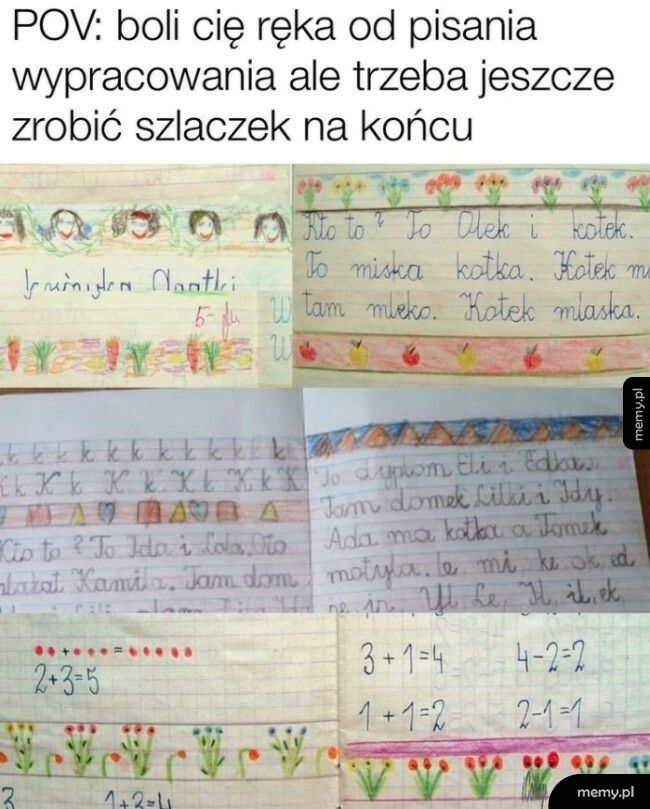 POV: boli cię ręka od pisania
wypracowania ale trzeba jeszcze
zrobić szlaczek na końcu
5-
Kto to? To Olek i kotek.
To miska kotka. Kotek m
tam mleko. Kotek mlaska.
memy.pl
k k k k k k k k k k k
k K k K k K k K k K
Kto to? To Ida i Lola. Oto
plakat Kamila. Tam dom
To dyplom Eli i Edka.
Tam domek Lilki i Idy.
Ada ma kotka a Tomek
motyla. le, mi, ke, ok, ed
2+3=5
3+1=4 4-2=2
1+1=2 2-1=1
3 1+2=4
memy.pl